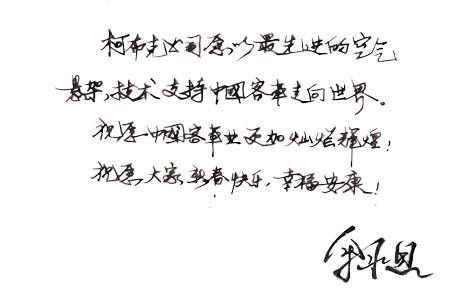 柯布克公司愿以最先进的空气
悬架,技术支持中國客車走向世界。
祝愿中國客車业更加灿烂辉煌!
祝愿大家新春快乐,幸福安康!